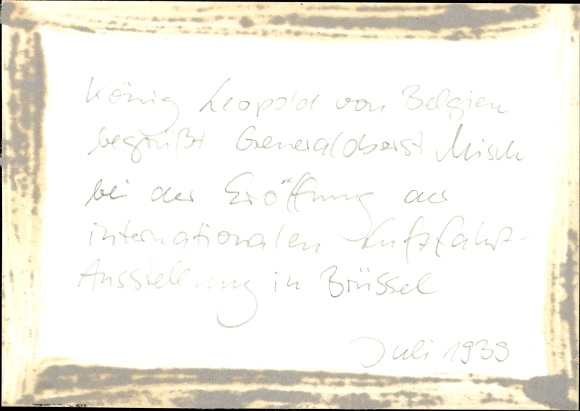 König Leopold von Belgien
begrüßt Generaloberst Milch
bei der Eröffnung der
internationalen Luftfahrt-
Ausstellung in Brüssel
Juli 1939